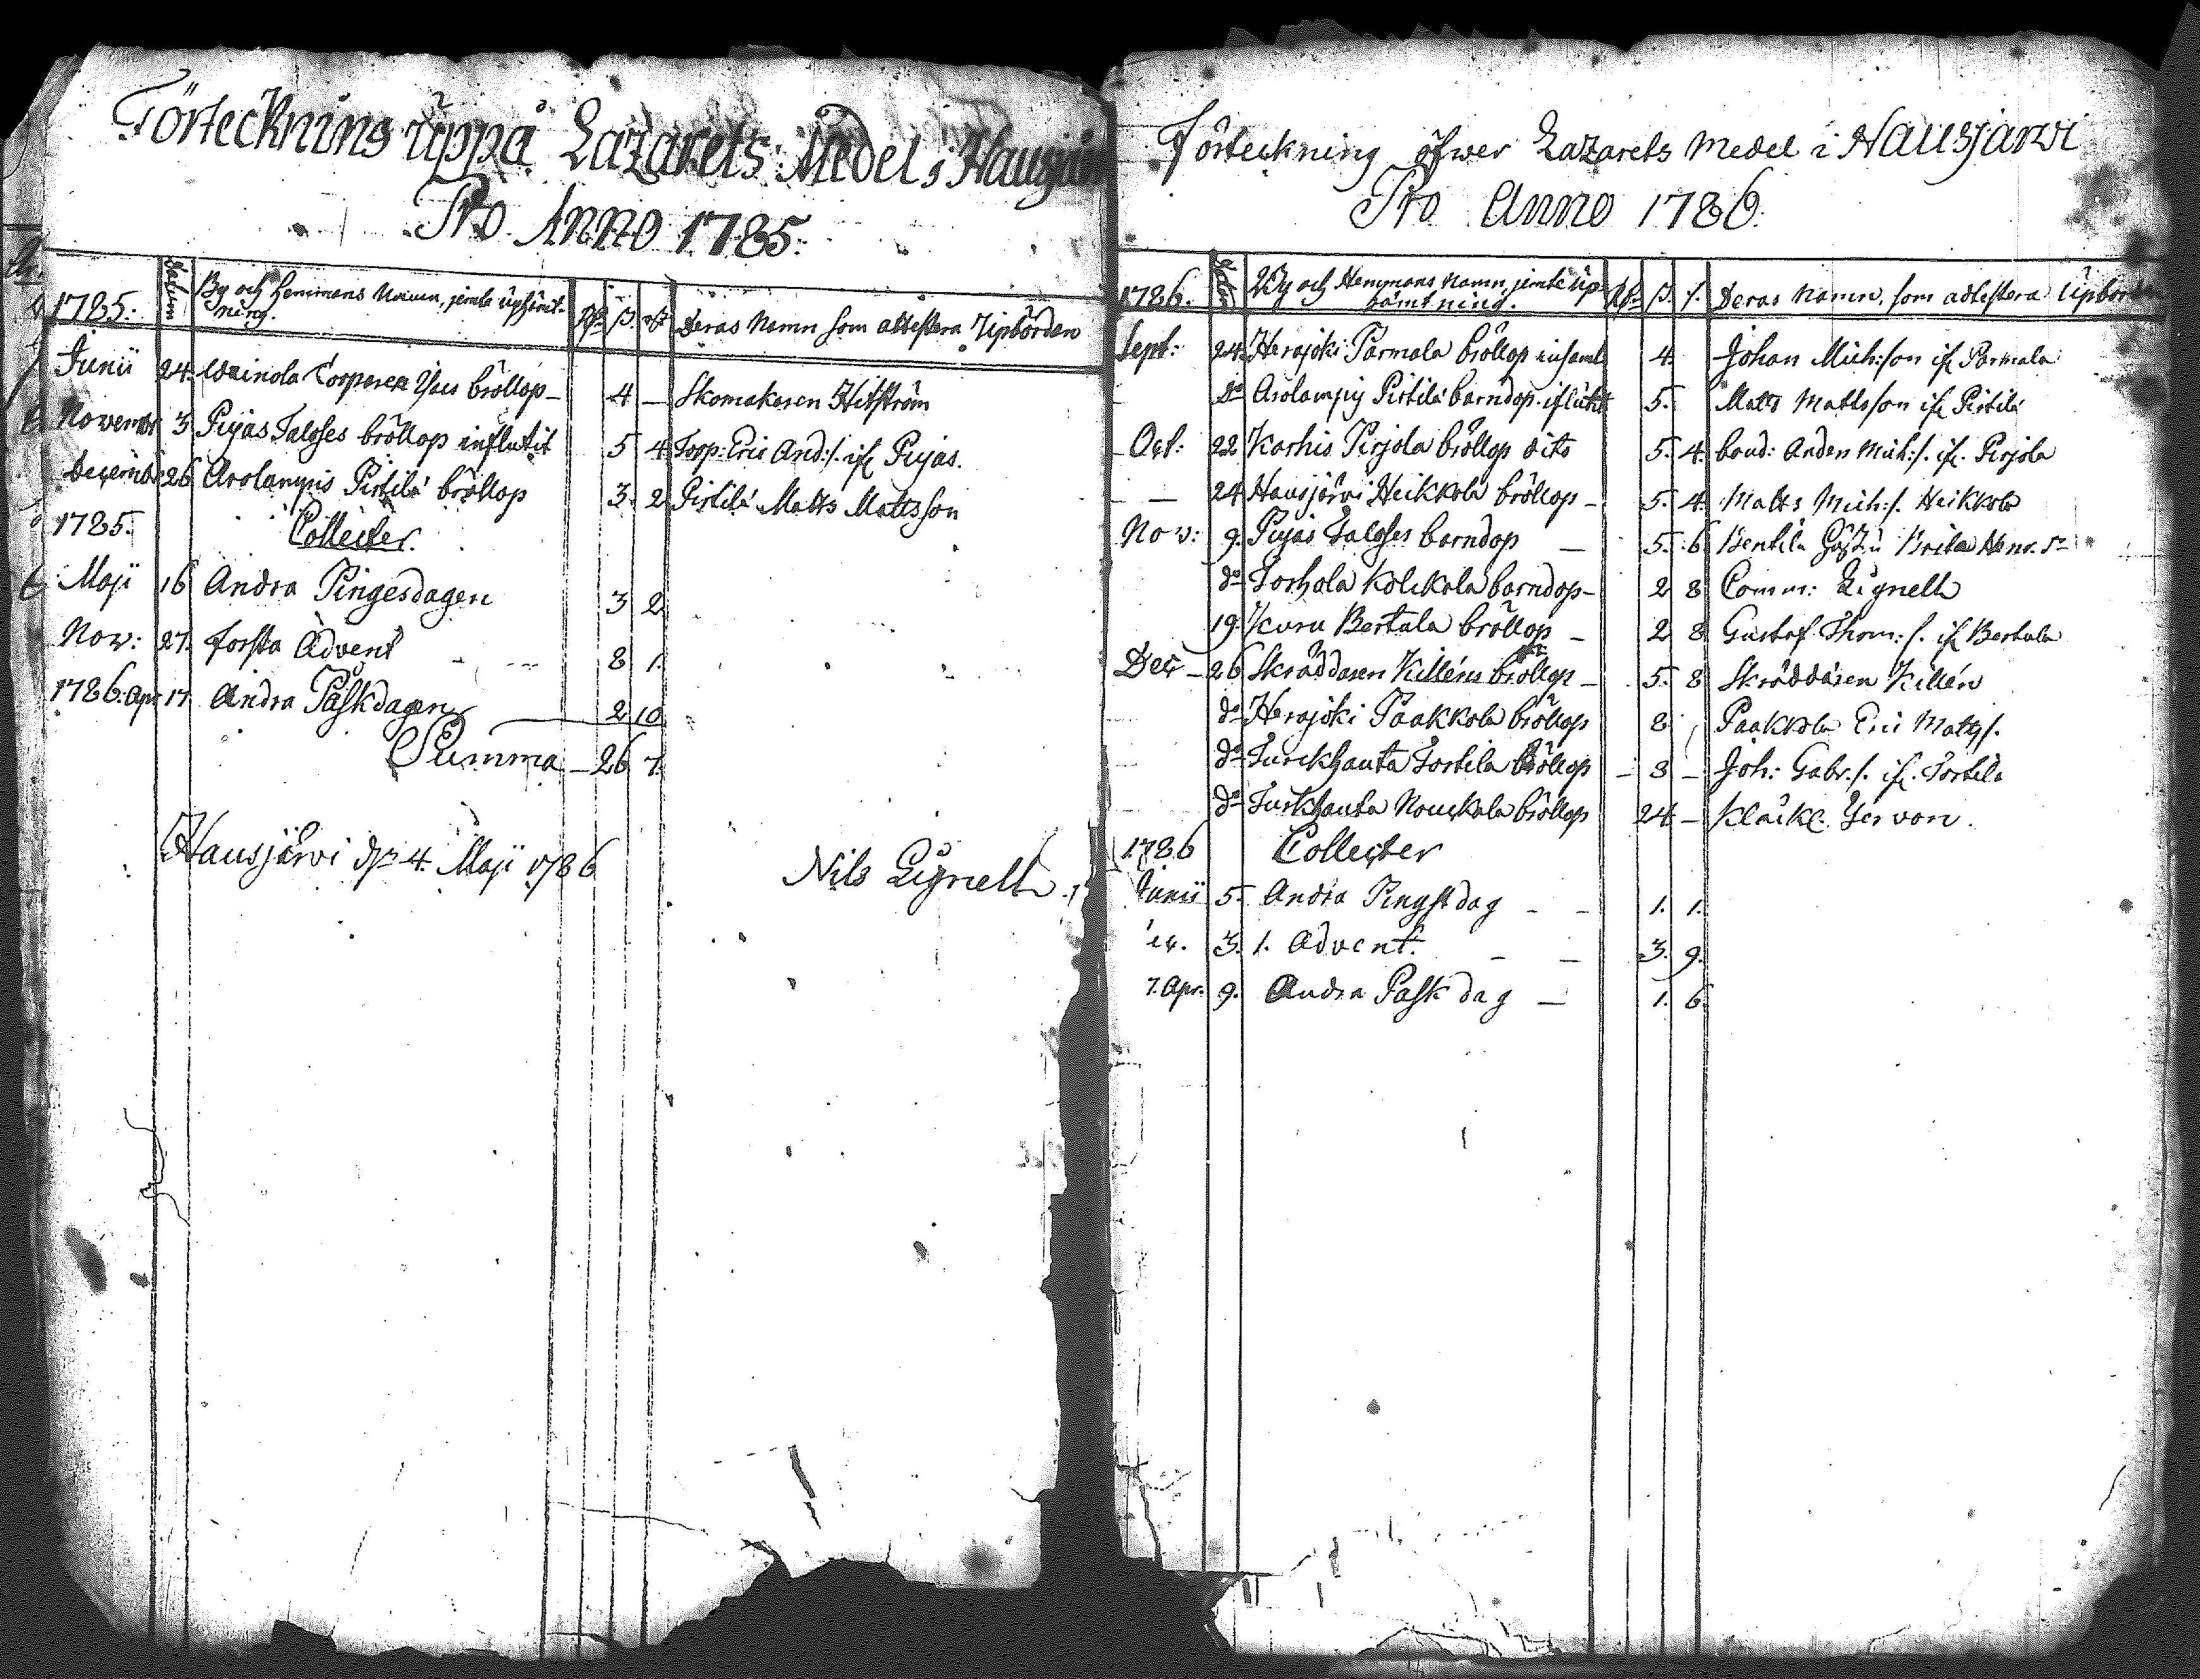 Förteckning uppå Lazarets Medel i Hausjär
Pro Anno 1785.
1785. Datum By och Hemmans Namn, jemte upsämt- Rd ß Deras Namn som attestera Upbörden
ning.
Junii 24. Wainola Torparen bröllop – 4 – Skomakaren Hitström
Novemb 3 Pujas Taloses bröllop influtit 5 4 Torp: Eric And:s. if Pujas.
Decemb 26 Arolampis Pirtilä bröllop 3. 2 Pirtilä Matts Mattsson
1785. Collecter.
Maji 16 Andra Pingesdagen 3 2
Nov: 27. forsta Advent 8 1.
1786. Apr 17. Andra Påskdagen 2 10
Summa – 26 7.
Hausjärvi d. 4. Maji 1786
Nils Lignell
Förteckning öfwer Lazarets Medel i Hausjärwi
Pro Anno 1786.
1786. By och Hemmans Namn, jemte Up- Rd ß. Deras Namn, som attestera Upbörd
sämtning.
Sept: 24. Herajoki Parmala bröllop insaml 4. Johan Mich:son if Parmala
do Arolampy Pirtilä barndop iflutit 5. Matts Mattsson if Pirtilä
Oct: 22 Karhis Pirjola bröllop dito 5. 4. bond: Anders Mich:s. if. Pirjola
– 24 Hausjärvi Heikkola bröllop – 5. 4. Matts Mich:s. Heikkola
Nov: 9. Pujas Taloses barndop – 5. 6. Bentila Brita Henr.
do Torhola Kolckala barndop – 2 8 Comm: Lignell
19. Kuru Bertula bröllop – 2 8 Gustaf Thom:s. if Bertula
Dec – 26 Skräddaren Killéns bröllop – 5. 8 Skräddaren Killén
do Herajoki Paakkola bröllop 8 Paakkola Eric Matts.
do Turckhauta Tortila Bröllop – 8 – Joh: Gabr:s. if. Tortila
do Turkhauta Nouckala bröllop 24 – Klåck. Gervon.
1786 Collecter
Junii 5. Andra Pingstdag – – 1. 1.
3. 1. Advent. – – 3. 9.
7. Apr. 9. Andra Påsk dag – 1. 6.